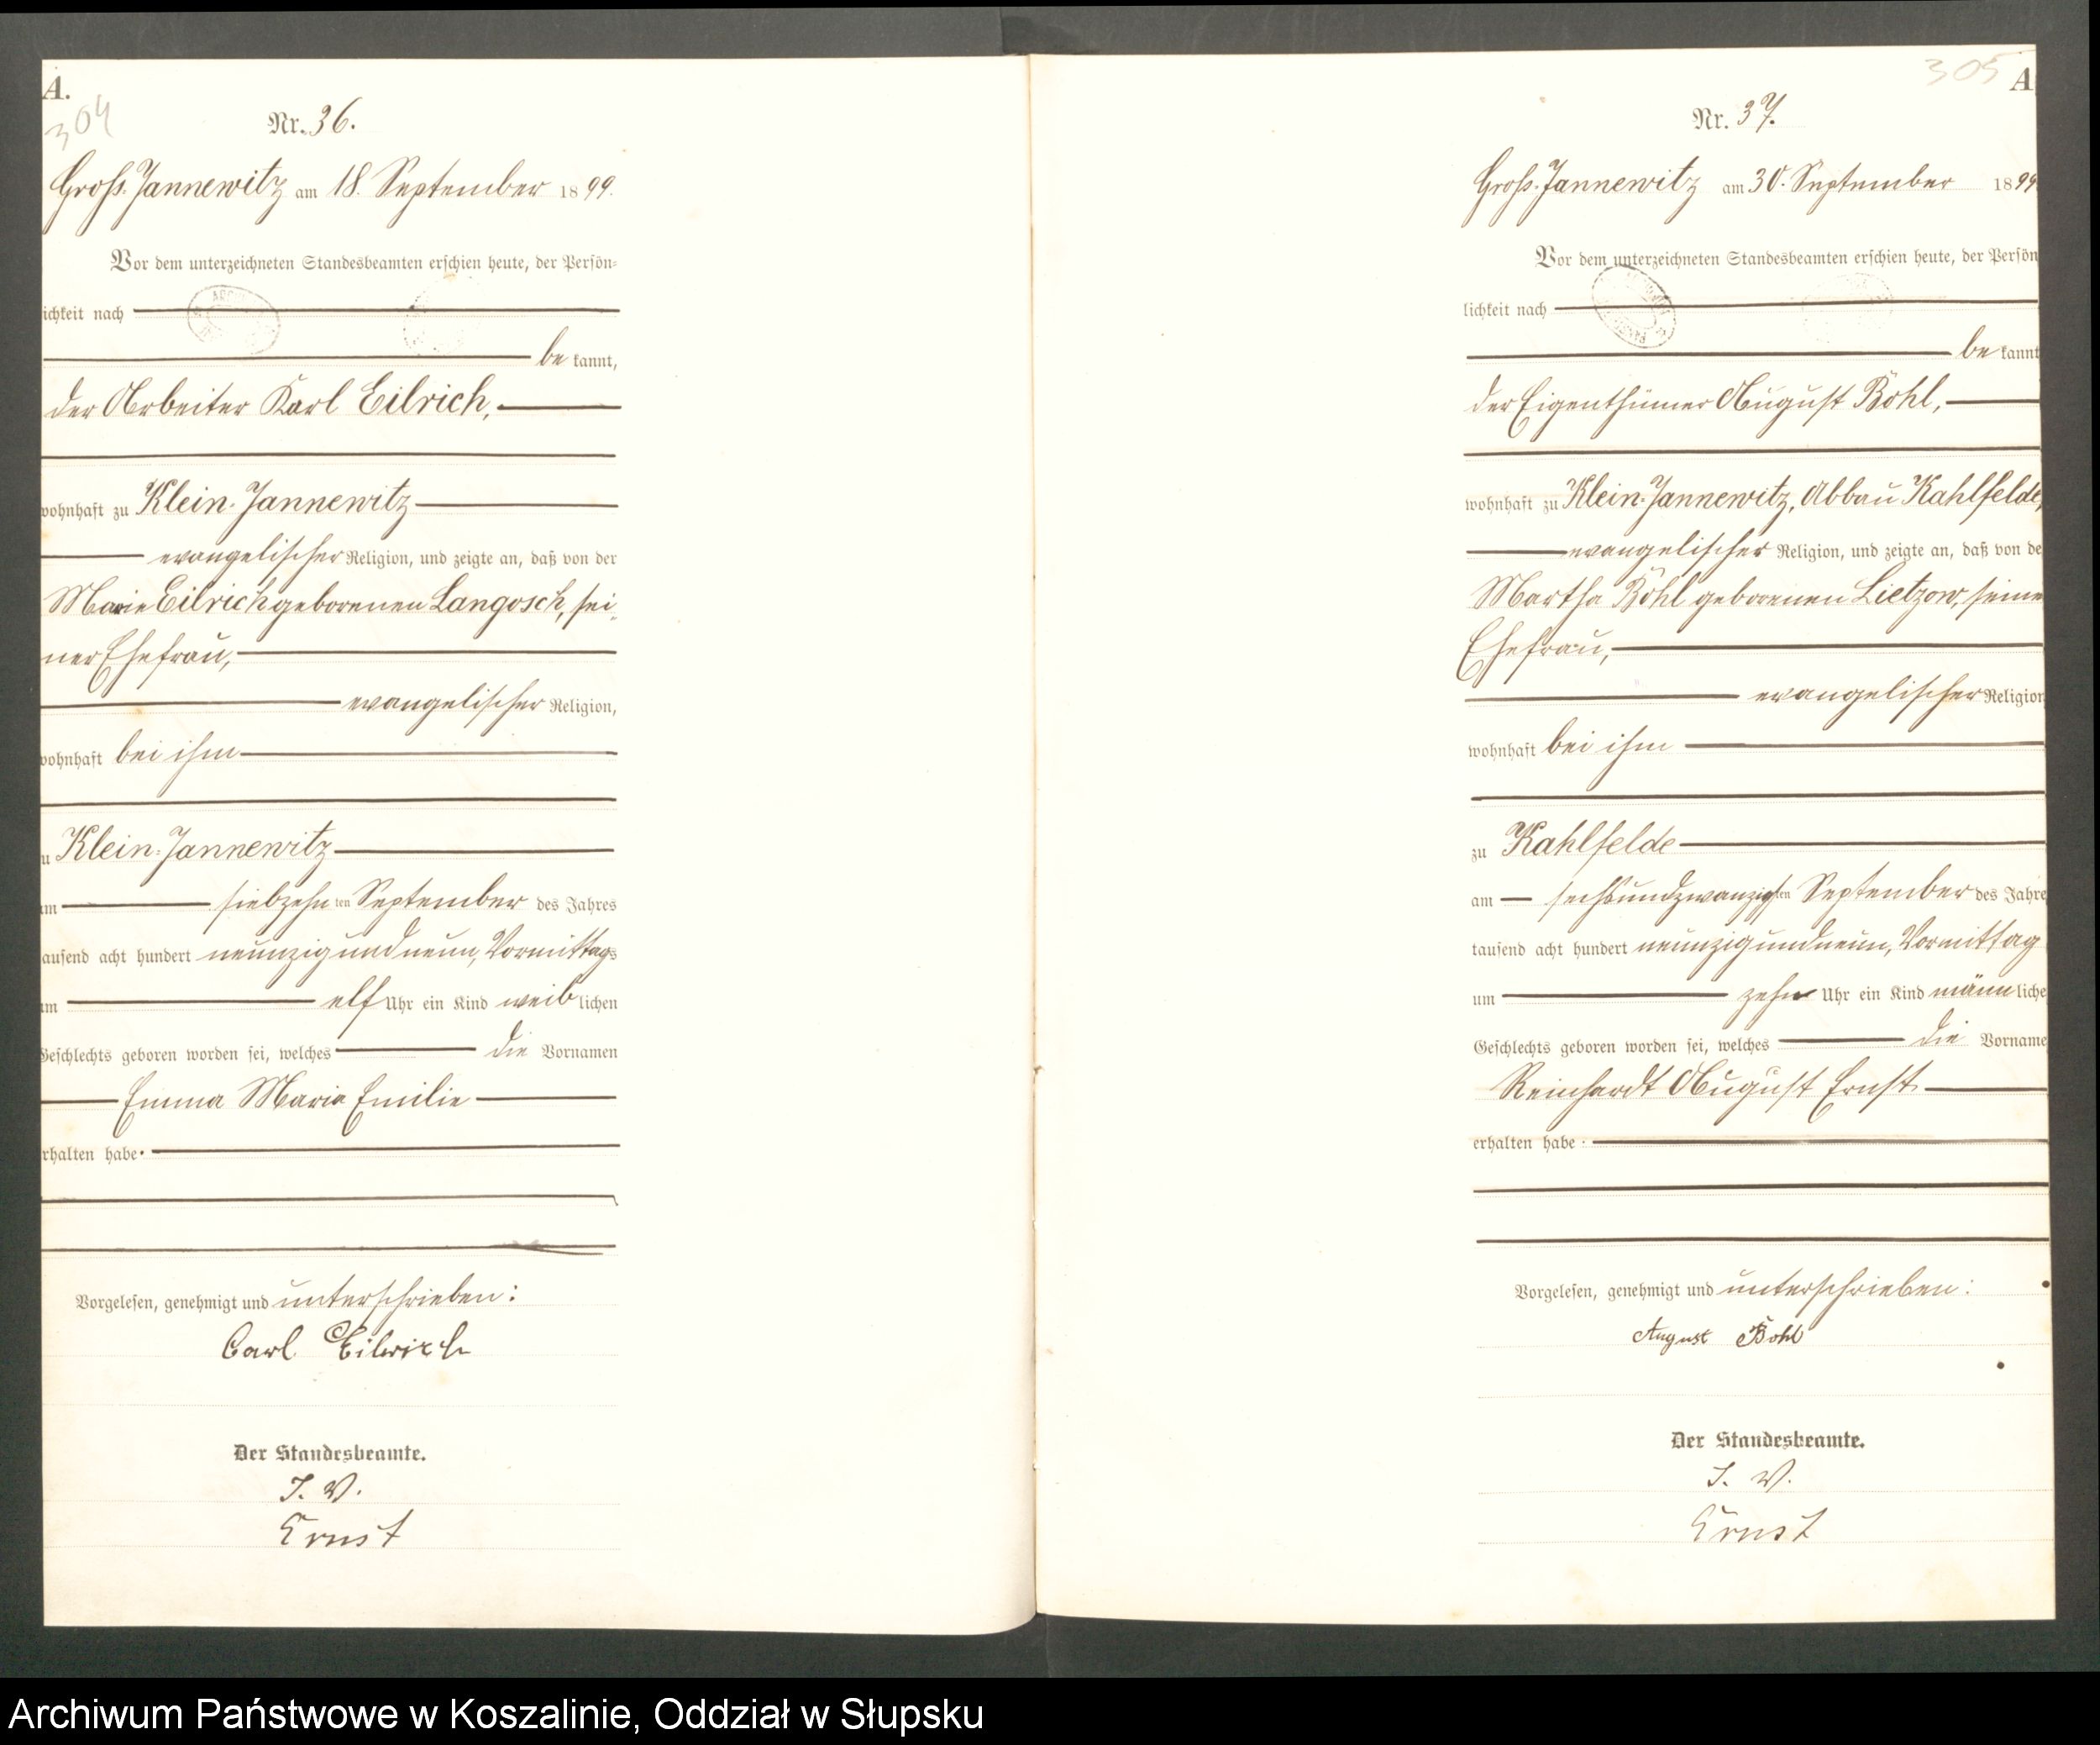 A.
304
Nr. 36.
Groß-Jannewitz am 18. September 1899.
Vor dem unterzeichneten Standesbeamten erschien heute, der Persön-
ichkeit nach
be kannt,
der Arbeiter Karl Eilrich,
wohnhaft zu Klein-Jannewitz
evangelischer Religion, und zeigte an, daß von der
Marie Eilrich geborenen Langosch, sei-
ner Ehefrau,
evangelischer Religion,
wohnhaft bei ihm
u Klein-Jannewitz
am siebzehnten September des Jahres
tausend acht hundert neunzig und neun, Vormittags
um elf Uhr ein Kind weiblichen
Geschlechts geboren worden sei, welches die Vornamen
Emma Maria Emilie
erhalten habe.
Vorgelesen, genehmigt und unterschrieben:
Carl Eilrich
Der Standesbeamte.
I. V.
Ernst
305
A
Nr. 37.
Groß-Jannewitz am 30. September 1899
Vor dem unterzeichneten Standesbeamten erschien heute, der Persön
lichkeit nach
be kannt
der Eigenthümer August Bohl,
wohnhaft zu Klein-Jannewitz, Abbau Kahlfelde,
evangelischer Religion, und zeigte an, daß von de
Martha Bohl geborenen Lietzow, seine
Ehefrau,
evangelischer Religion
wohnhaft bei ihm
zu Kahlfelde
am sechsundzwanzigsten September des Jahre
tausend acht hundert neunzig und neun, Vormittag
um zehn Uhr ein Kind männliche
Geschlechts geboren worden sei, welches die Vorname
Reinhardt August Ernst
erhalten habe.
Vorgelesen, genehmigt und unterschrieben:
August Bohl
Der Standesbeamte.
I. V.
Ernst
Archiwum Państwowe w Koszalinie, Oddział w Słupsku